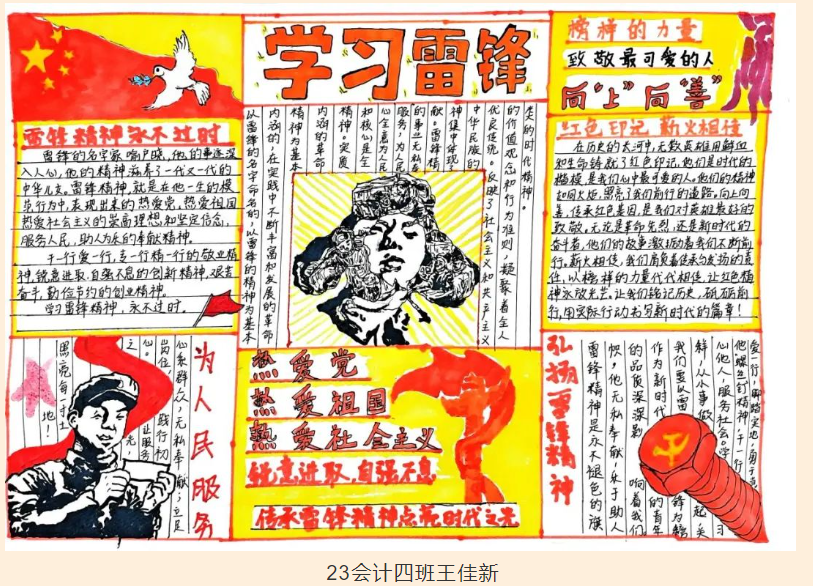 学习雷锋
榜样的力量
致敬最可爱的人
向“上”向“善”
雷锋精神永不过时
雷锋的名字家喻户晓,他的事迹深
入人心,他的精神滋养了一代又一代的
中华儿女。雷锋精神,就是在他一生的模
范行为中,表现出来的热爱党、热爱祖国
热爱社会主义的崇高理想和坚定信念,
服务人民、助人为乐的奉献精神。
干一行爱一行,专一行精一行的敬业精
神,锐意进取、自强不息的创新精神,艰苦
奋斗、勤俭节约的创业精神。
学习雷锋精神,永不过时。
类的时代精神。
的价值观念和行为准则,凝聚着全人
优良传统。反映了社会主义和共产主义
中华民族的
神集中体现了
献。雷锋精
的事业无私奉
服务,为人民
心全意为人民
和核心是全
精神。实质
内涵的革命
精神为基本
内涵的,在实践中不断丰富和发展的革命
以雷锋的名字命名的,以雷锋的精神为基本
红色印记 薪火相传
在历史的长河中,无数英雄用鲜血
和生命铸就了红色印记,他们是时代的
楷模,是我们心中最可爱的人。他们的精神
如同火炬,照亮了我们前行的道路。向上向
善,传承红色基因,是我们对英雄最好的
致敬。无论是革命先烈,还是新时代的
奋斗者,他们的故事激励着我们不断前
行。薪火相传,我们肩负着传承与发扬的责
任,以榜样的力量代代相传,让红色精
神永放光芒。让我们铭记历史,砥砺前
行,用实际行动书写新时代的篇章!
为人民服务
心系群众,无私奉献,立足
岗位,
践行初
心。
让服务
之
光,
照亮每一寸土
地!
热爱党
热爱祖国
热爱社会主义
锐意进取 自强不息
传承雷锋精神点亮时代之光
弘扬雷锋精神
雷锋精神是永不褪色的旗
帜,他无私奉献,乐于助人
的品质深深影响着我们
作为新时代的青年
我们要以雷锋为榜
样,从小事做起,关
心他人,服务社会。学习
他螺丝钉精神,干一行
爱一行,脚踏实地,勇于
23会计四班王佳新